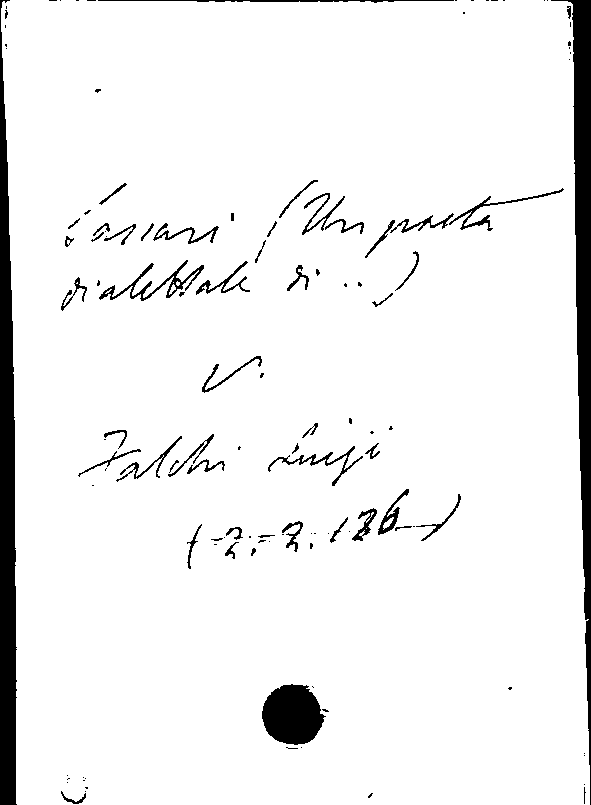 Sassari (Un poeta
dialettale di ..)
V.
Falchi Luigi
(2.-2.126)